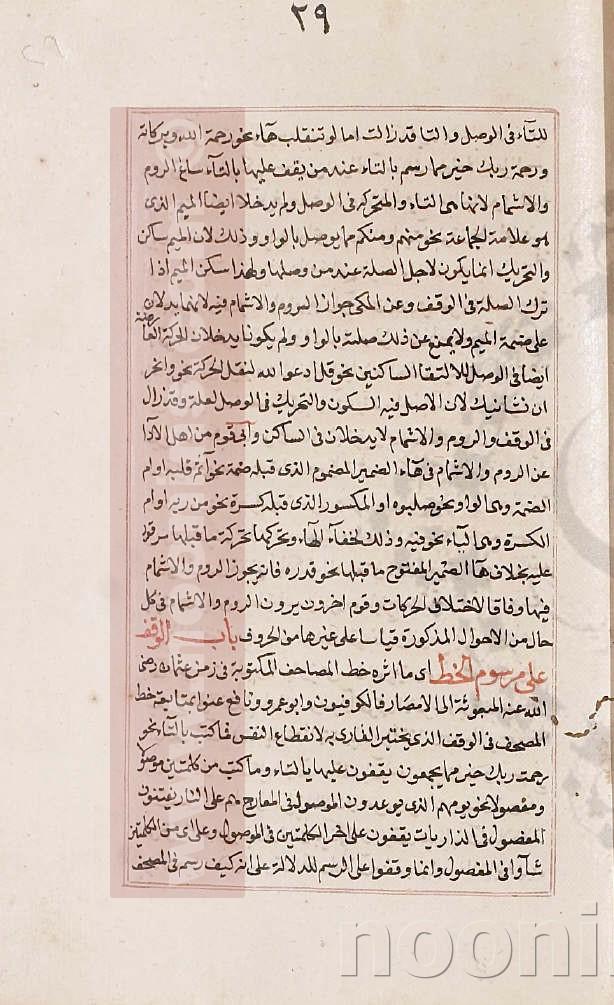 ٢٩
للتآء فى الوصل والتا قد زالت اما لو تنقلب هآء نحو رحمة الله وبركاته
ورحمة ربك خير مما رسم بالتاء عند من يقف عليها بالتآء ساغ الروم
والاشمام لانها هى التاء والمتحركه فى الوصل ولم يدخلا ايضا الميم الذى
هو علامة الجماعة نحو منهم ومنكم مما يوصل بالواو وذلك لان الميم ساكن
والتحريك انما يكون لاجل الصلة عند من وصلها ولهذا سكن الميم اذا
ترك الصلة فى الوقف وعن المكى جواز الروم والاشمام فيه لانهما يدلان
على ضمة الميم ولا يمنع عن ذلك صلته بالواو ولم يكونا يدخلان الحركة العا
رضة
ايضا فى الوصل للالتقا الساكنين نحو قل ادعوا الله لنقل الحركة نحو وانحر
ان شانيك لان الاصل فيه السكون والتحريك فى الوصل لعلة وقد زال
فى الوقف والروم والاشمام لا يدخلان فى الساكن وابى قوم من اهل الادا
عن الروم والاشمام فى هآء الضمير المضموم الذى قبله ضمة نحو آثم قلبه او ام
الضمة وهى الواو نحو صلبوه او المكسور الذى قبله كسرة نحو من ربه او ام
الكسرة وهى اليآء نحو فيه وذلك لخفآء الهآء وتحركها بحركة ما قبلها
عليه بخلاف هآ الضمير المفتوح ما قبلها نحو قدره فانه يجوز الروم والاشمام
فيها وفاقا لاختلاف الحركات وقوم اخرون يرون الروم والاشمام فى كل
حال من الاحوال المذكورة قياسا على غيرها من الحروف باب الوقف
على مرسوم الخط اى ما اثره خط المصاحف المكتوبة فى زمن عثمان رضى
الله عنه المبعوثة الى الامصار فالكوفيون وابو عمرو ونافع عنوا بمتابعة خط
المصحف فى الوقف الذى يختبر القارى به لانقطاع النفس فما كتب بالتآء نحو
رحمت ربك خير مما يجمعون يقفون عليها بالتاء وما كتب من كلمتين موصولا
ومفصولا نحو يومهم الذى يوعدون الموصول فى المعارج هم على النار يفتنون
المفصول فى الذاريات يقفون على اخر الكلمتين فى الموصول وعلى اى من الكلمتين
شآوا فى المفصول وانما وقفوا على الرسم للدلالة على انه كيف رسم فى المصحف
nooni